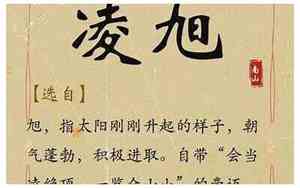 凌旭
南山
【选自】
旭，指太阳刚刚升起的样子，朝
气蓬勃，积极进取。自带“会当